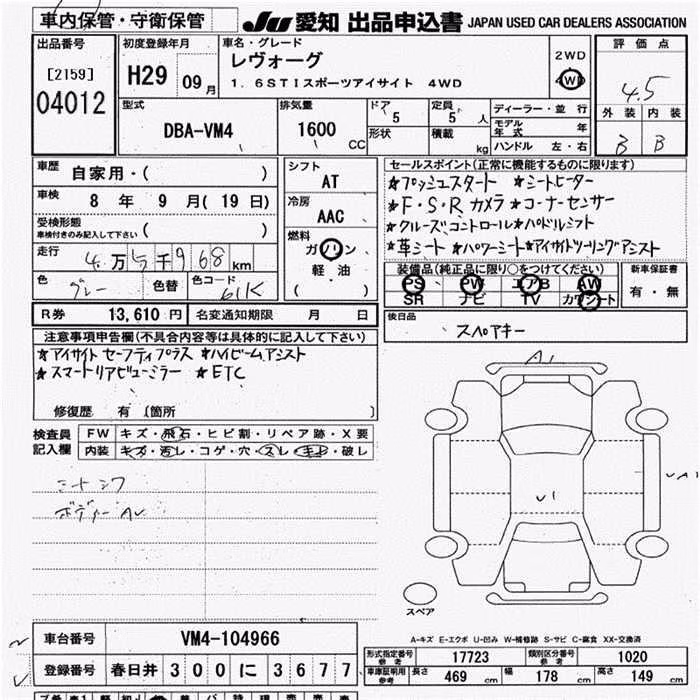 車内保管・守衛保管
JU 愛知 出品申込書 JAPAN USED CAR DEALERS ASSOCIATION
出品番号
[2159]
04012
初度登録年月
H29 09月
車名・グレード
レヴォーグ
1.6STIスポーツアイサイト 4WD
2WD
4WD
評価点
4.5
外装 内装
B B
型式
DBA-VM4
排気量
1600 CC
ドア
5
形状
定員
5人
積載
kg
ディーラー・並行
モデル年式 年
ハンドル 左・右
車歴
自家用・( )
車検
8年 9月(19日)
受検形態
車検付きのみ記入して下さい
( )
走行
4万5千968km
色
グレー
色替
色コード
61K
シフト
AT
冷房
AAC
燃料
ガソリン
軽油
( )
セールスポイント(正常に機能するものに限ります)
★プッシュスタート ★シートヒーター
★F・S・Rカメラ ★コーナーセンサー
★クルーズコントロール★パドルシフト
★革シート★パワーシート★アイサイトツーリングアシスト
装備品(純正品に限り○をつけてください)
PS PW エアB AW
SR ナビ TV カワシート
新車保証書
有・無
R券 13,610円
名変通知期限 月 日
後日品
スペアキー
注意事項申告欄(不具合内容等は具体的に記入して下さい)
★アイサイトセーフティプラス ★ハイビームアシスト
★スマートリアビューミラー ★ETC
修復歴 有〔箇所 〕
検査員記入欄
FW キズ・飛石・ヒビ割・リペア跡・X要
内装 キズ・汚レ・コゲ・穴・スレ・キレ・破レ
シートシワ
ボディー AU
A1
U1
スペア
A-キズ E-エクボ U-凹み W-補修跡 S-サビ C-腐食 XX-交換済
車台番号 VM4-104966
登録番号 春日井 300 に 3677
形式指定番号 参考 17723
類別区分番号 参考 1020
車庫証明用 参考 長さ 469cm 幅 178cm 高さ 149cm